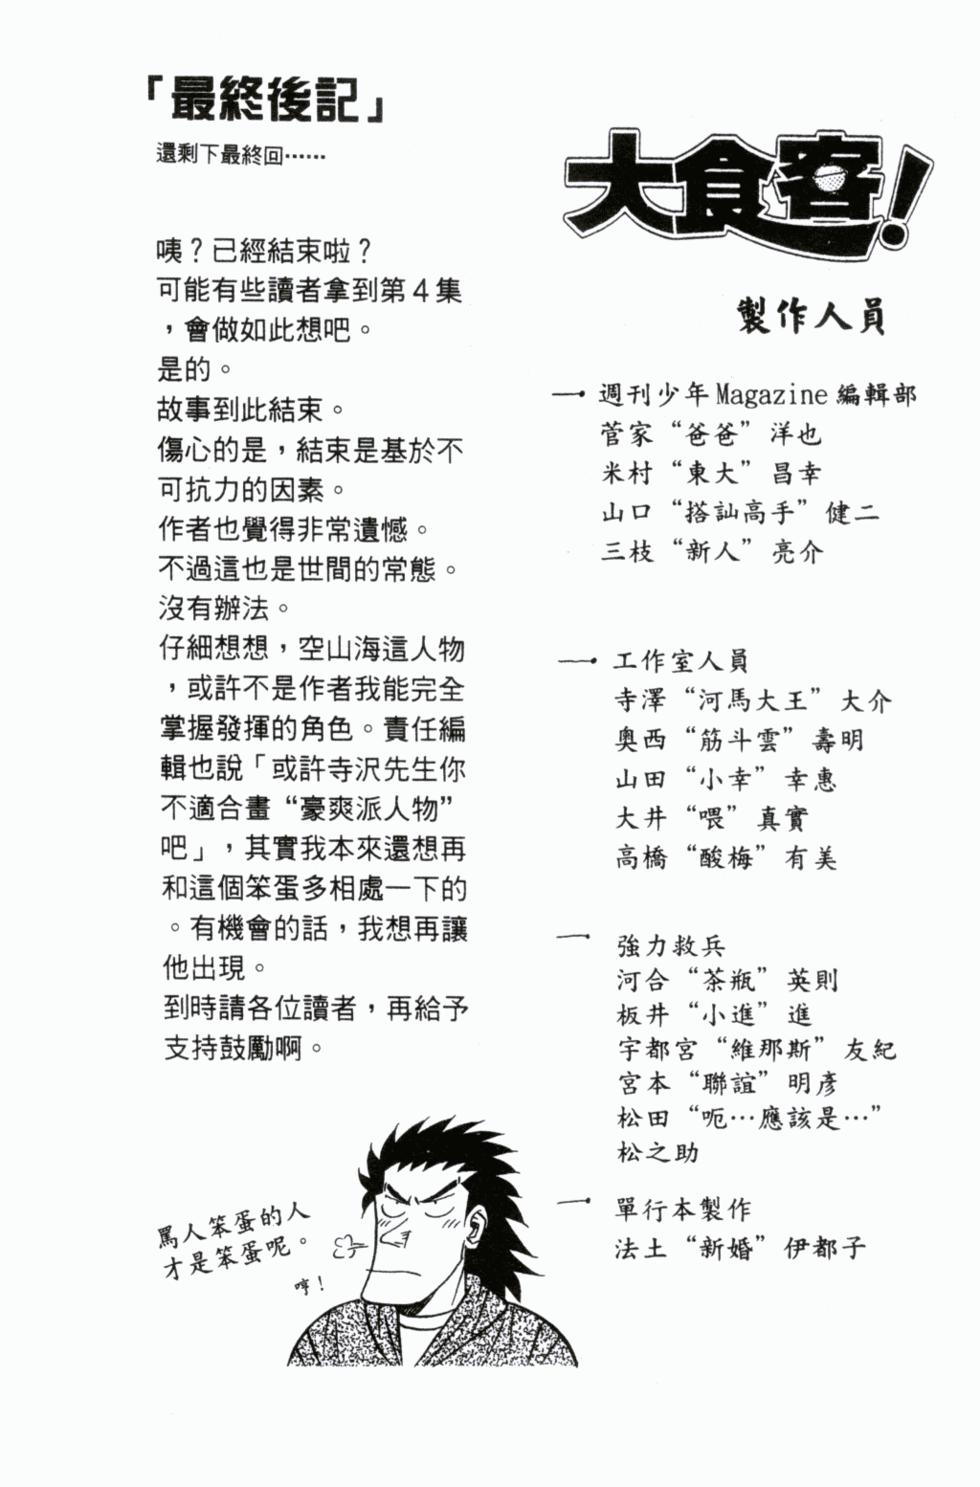 「最終後記」
還剩下最終回……
咦？已經結束啦？
可能有些讀者拿到第４集
，會做如此想吧。
是的。
故事到此結束。
傷心的是，結束是基於不
可抗力的因素。
作者也覺得非常遺憾。
不過這也是世間的常態。
沒有辦法。
仔細想想，空山海這人物
，或許不是作者我能完全
掌握發揮的角色。責任編
輯也說「或許寺沢先生你
不適合畫“豪爽派人物”
吧」，其實我本來還想再
和這個笨蛋多相處一下的
。有機會的話，我想再讓
他出現。
到時請各位讀者，再給予
支持鼓勵啊。
罵人笨蛋的人
才是笨蛋呢。
哼！
大食客！
製作人員
週刊少年Magazine編輯部
菅家“爸爸”洋也
米村“東大”昌幸
山口“搭訕高手”健二
三枝“新人”亮介
工作室人員
寺澤“河馬大王”大介
奧西“筋斗雲”壽明
山田“小幸”幸惠
大井“喂”真實
高橋“酸梅”有美
強力救兵
河合“茶瓶”英則
板井“小進”進
宇都宮“維那斯”友紀
宮本“聯誼”明彥
松田“呃…應該是…”
松之助
單行本製作
法土“新婚”伊都子